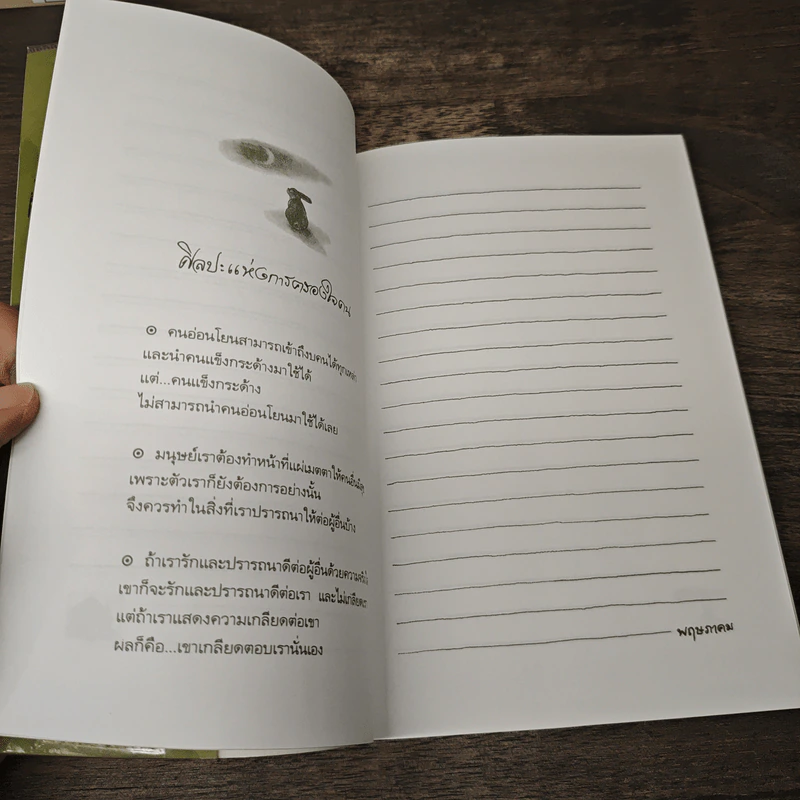 ศิลปะแห่งการครองใจคน
คนอ่อนโยนสามารถเข้าถึงบคนได้ทุก
และนำคนแข็งกระด้างมาใช้ได้
แต่...คนแข็งกระด้าง
ไม่สามารถนำคนอ่อนโยนมาใช้ได้เลย
มนุษย์เราต้องทำหน้าที่แผ่เมตตาให้คนอื่น
เพราะตัวเราก็ยังต้องการอย่างนั้น
จึงควรทำในสิ่งที่เราปรารถนาให้ต่อผู้อื่นบ้าง
ถ้าเรารักและปรารถนาดีต่อผู้อื่นด้วยความ
เขาก็จะรักและปรารถนาดีต่อเรา และไม่เกลียด
แต่ถ้าเราแสดงความเกลียดต่อเขา
ผลก็คือ...เขาเกลียดตอบเรานั่นเอง
พฤษภาคม